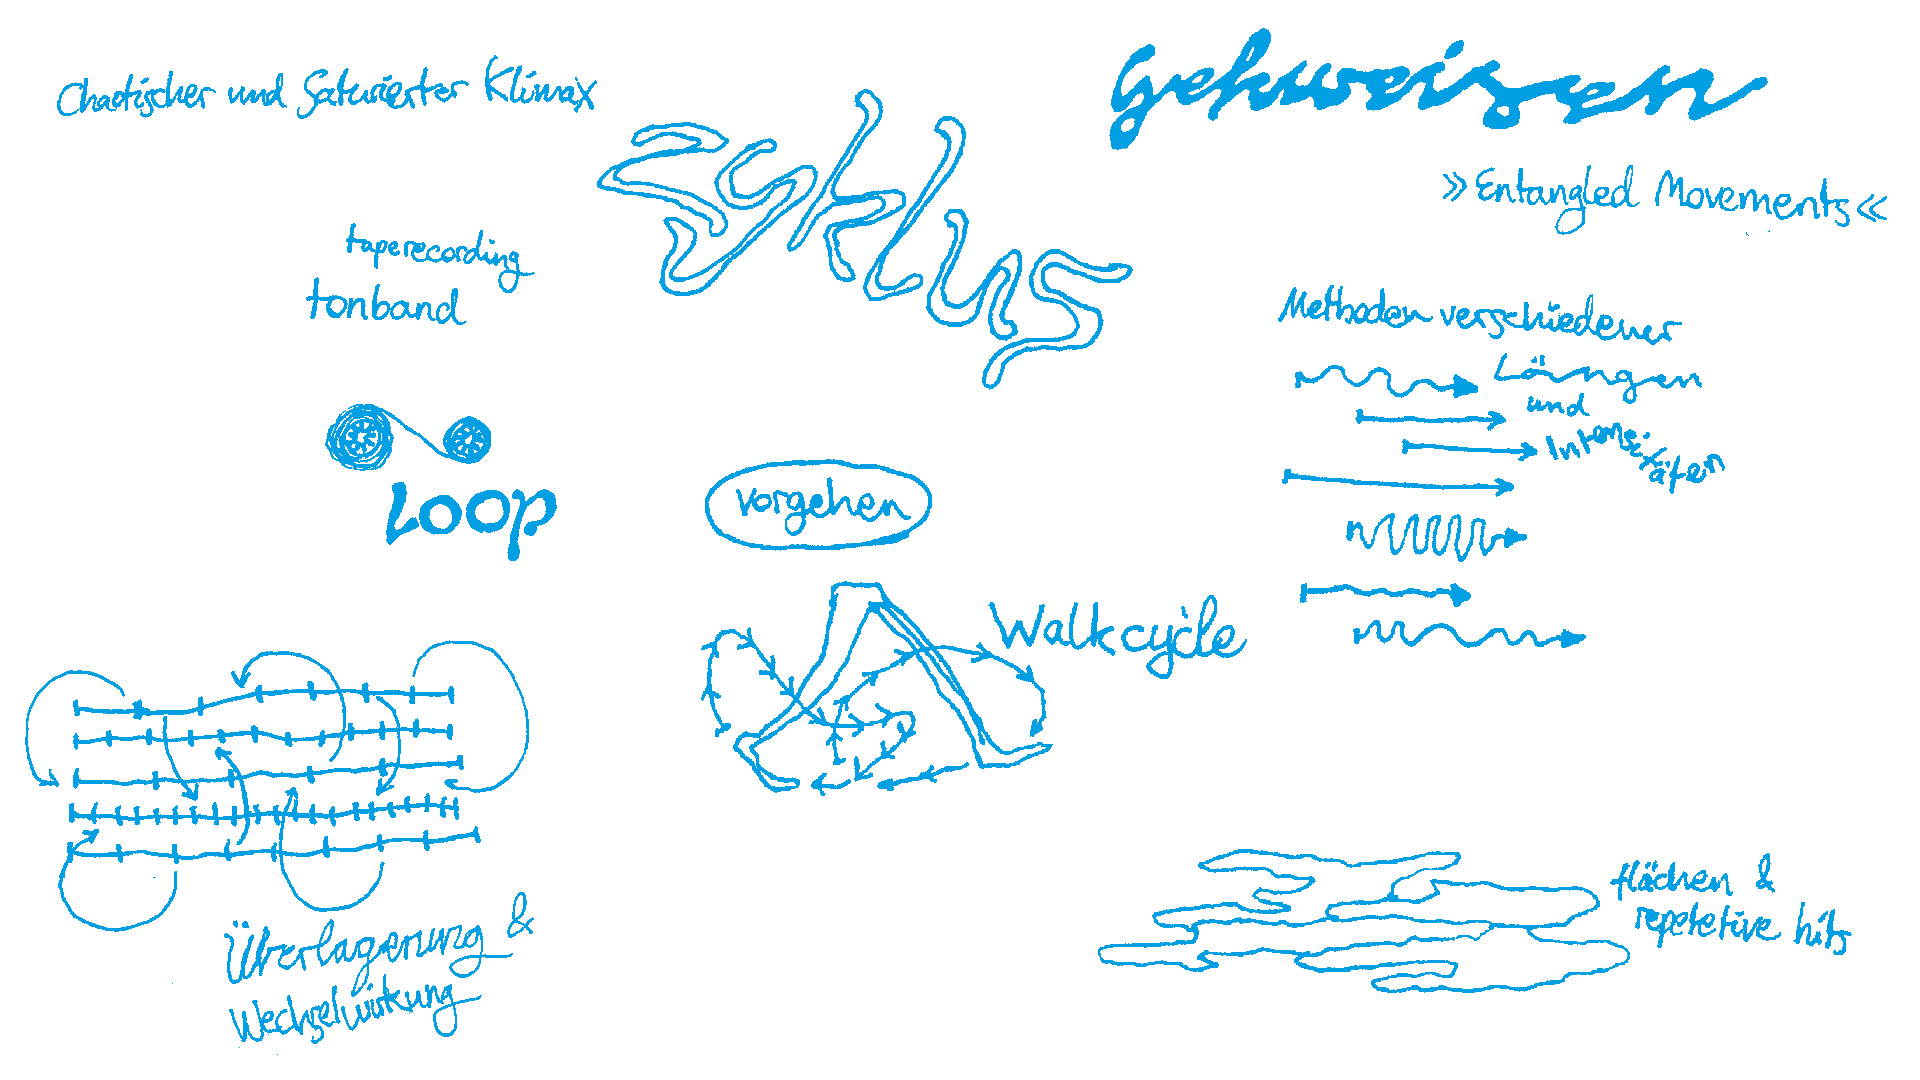 Chaotischer und Saturierter Klimax
Zyklus
Gehweisen
»Entangled Movements«
taperecording
tonband
Loop
vorgehen
Walkcycle
Methoden verschiedener
Längen
und
Intensitäten
Überlagerung &
Wechselwirkung
flächen &
repetetive hits